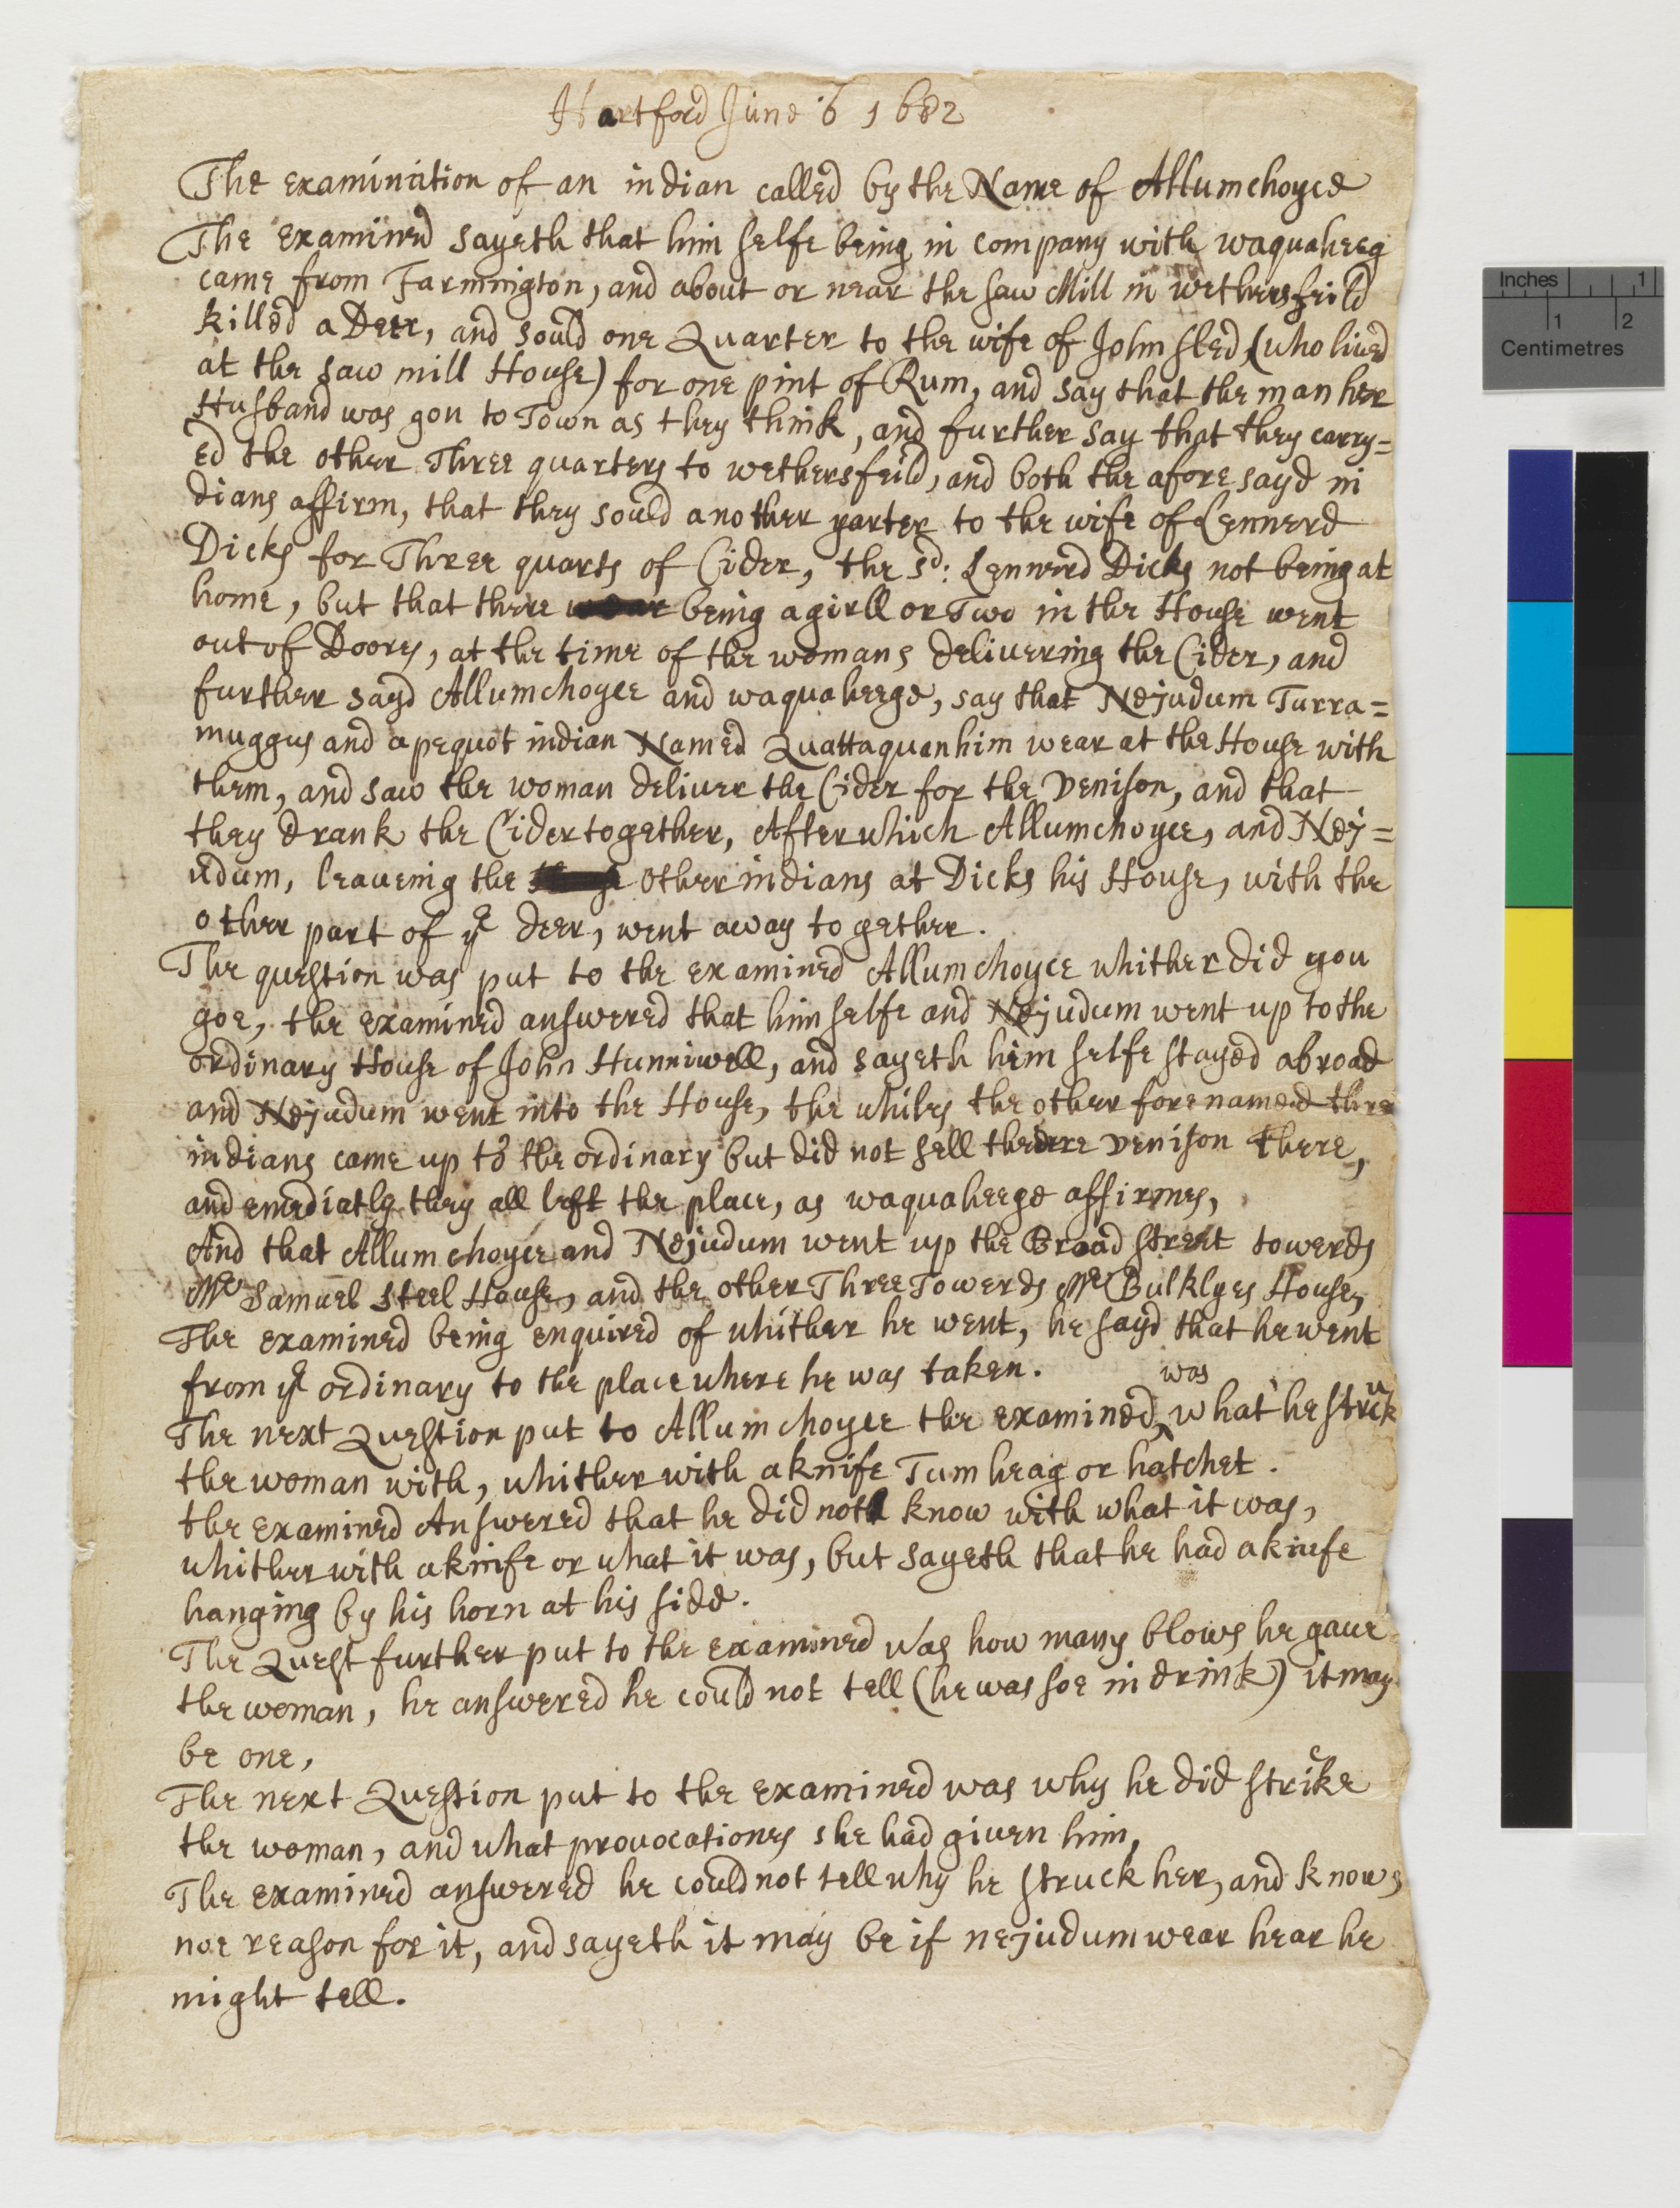 Hartford June 6 1682
The examination of an indian called by the Name of Allumchoyce
The examined sayeth that him selfe being in company with waquaheeg
came from Farmington, and about or near the saw Mill in wethersfeild
killed a Deer, and sould one Quarter to the wife of John sled, (who lived
at the saw mill House) for one pint of Rum, and say that the man her
Husband was gon to Town as they think, and further say that they carry=
ed the other Three quarters to wethersfeild, and both the afore sayd in
dians affirm, that they sould another yarter to the wife of Lennerd
Dicks for Three quarts of Cider, the sd: Lennerd Dicks not being at
home, but that there being a girll or Two in the House went
out of Doores, at the time of the womans delivering the Cider, and
further sayd Allumchoyce and waquaheege, say that Nejudum Turra=
muggus and a pequot indian Named Quattaquanhim wear at the House with
them, and saw the woman deliver the Cider for the Venison, and that
they drank the Cider together, After which Allumchoyce, and Nej=
udum, leaveing the other indians at Dicks his House, with the
other part of ye deer, went away to gether.
The question was put to the examined Allumchoyce whither did you
goe, the examined answered that him selfe and Nejudum went up to the
ordinary House of John Hunniwell, and sayeth him selfe stayed abroad
and Nejudum went into the House, the whiles the other forenamed three
indians came up to the ordinary but did not sell there Venison there,
and emediatly they all left the place, as waquaheege affirmes,
And that Allumchoyce and Nejudum went up the Broad street towerds
Mr Samuel Steel House, and the other Three Towerds Mr Bulklyes House,
The examined being enquired of whither he went, he sayd that he went
from ye ordinary to the place where he was taken.
The next Question put to Allumchoyce the examined, was what he struck
the woman with, whither with a knife Tumheag or hatchet.
the examined Answered that he did not know with what it was,
whither with a knife or what it was, but sayeth that he had a knife
hanging by his horn at his side.
The Quest further put to the examined was how many blows he gave
the woman, he answered he could not tell (he was soe in drink) it may
be one,
The next Question put to the examined was why he did strike
the woman, and what provocationes she had given him,
The examined answered he could not tell why he struck her, and knows
noe reason for it, and sayeth it may be if nejudum wear hear he
might tell.
Inches 1
1 2
Centimetres